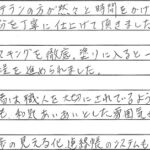 テランの方が悠々と時間をかけ
分を丁寧に仕上げて頂きました
スキングを徹底、塗りに入ると一
程を進められました。
者は職人を大切にされているよう
も、和気あいあいとした雰囲気
の見える化、連絡帳のシステムも